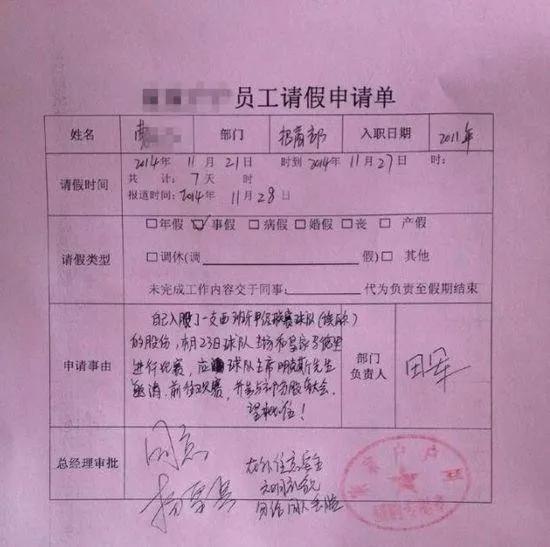 员工请假申请单
姓名 部门 招商部 入职日期 2011年
请假时间 2014年 11月21日 时到2014年11月27日 时:
共 计: 7天 时
报道时间: 2014年11月28日
请假类型 □年假 ☑事假 □病假 □婚假 □丧 □产假
□调休(调 假)□ 其他
未完成工作内容交于同事: 代为负责至假期结束
申请事由 自己入股了一支西班牙甲级联赛球队(埃瓦尔)
的股份, 11月23日球队主场和皇家马德里
进行比赛, 应 球队主席 先生
邀请, 前往观赛, 并参与 股东大会.
望批准!
部门
负责人 田军
总经理审批 同意
杨
在外注意安全